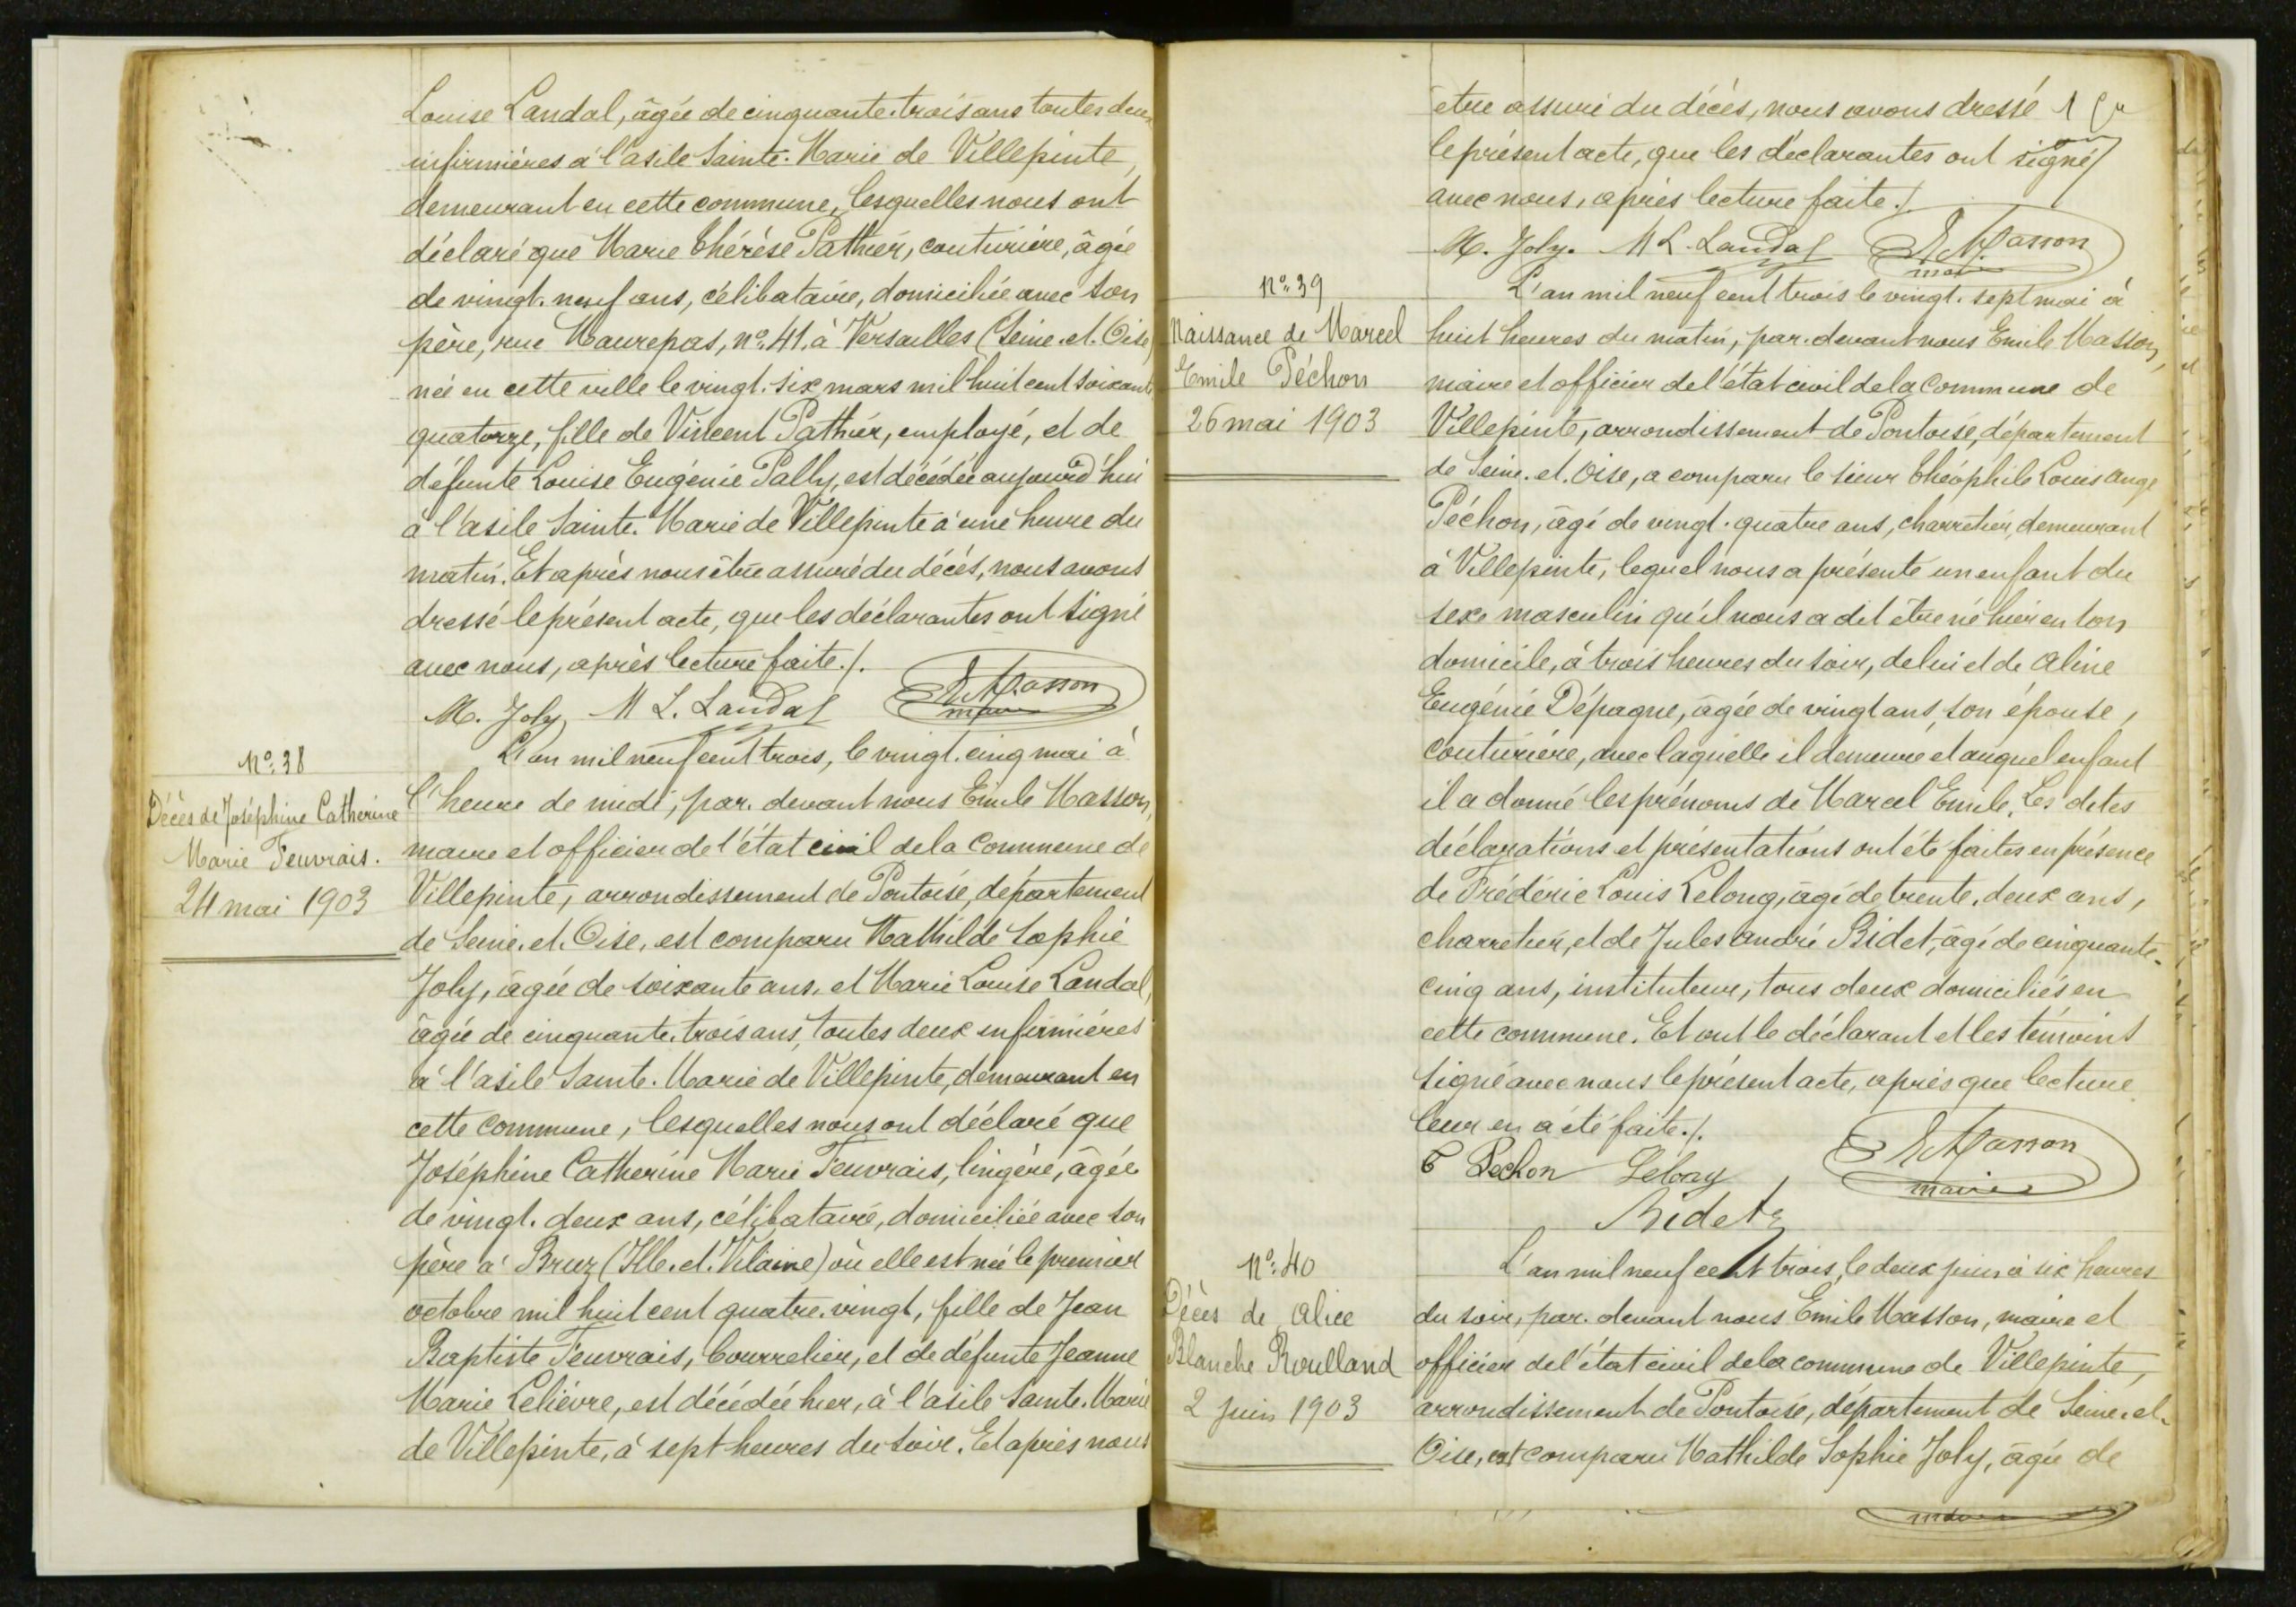 Louise Landal, âgée de cinquante-trois ans toutes deux
infirmières à l'asile Sainte-Marie de Villepinte,
demeurant en cette commune, lesquelles nous ont
déclaré que Marie Thérèse Pathier, couturière, âgée
de vingt-neuf ans, célibataire, domiciliée avec son
père, rue Maurepas, n° 41, à Versailles (Seine-et-Oise)
née en cette ville le vingt-six mars mil huit cent soixante
quatorze, fille de Vincent Pathier, employé, et de
défunte Louise Eugénie Pally, est décédée aujourd'hui
à l'asile Sainte-Marie de Villepinte à une heure du
matin. Et après nous être assuré du décès, nous avons
dressé le présent acte, que les déclarantes ont signé
avec nous, après lecture faite./.
M. Joly M L. Landal E. Masson
maire
N° 38
Décès de Joséphine Catherine
Marie Feuvrais.
24 mai 1903
L'an mil neuf cent trois, le vingt-cinq mai à
l'heure de midi, par-devant nous Emile Masson,
maire et officier de l'état civil de la commune de
Villepinte, arrondissement de Pontoise, département
de Seine-et-Oise, est comparu Mathilde Sophie
Joly, âgée de soixante ans, et Marie Louise Landal,
âgée de cinquante-trois ans, toutes deux infirmières
à l'asile Sainte-Marie de Villepinte, demeurant en
cette commune, lesquelles nous ont déclaré que
Joséphine Catherine Marie Feuvrais, lingère, âgée
de vingt-deux ans, célibataire, domiciliée avec son
père à Bruz (Ille-et-Vilaine) où elle est née le premier
octobre mil huit cent quatre-vingt, fille de Jean
Baptiste Feuvrais, bourrelier, et de défunte Jeanne
Marie Lelièvre, est décédée hier, à l'asile Sainte-Marie
de Villepinte, à sept heures du soir. Et après nous
être assuré du décès, nous avons dressé
le présent acte, que les déclarantes ont signé
avec nous, après lecture faite./.
M. Joly. M L. Landal E. Masson
maire
N° 39
Naissance de Marcel
Emile Péchon
26 mai 1903
L'an mil neuf cent trois le vingt-sept mai à
huit heures du matin, par-devant nous Emile Masson,
maire et officier de l'état civil de la commune de
Villepinte, arrondissement de Pontoise, département
de Seine-et-Oise, a comparu le sieur Théophile Louis Ange
Péchon, âgé de vingt-quatre ans, charretier, demeurant
à Villepinte, lequel nous a présenté un enfant du
sexe masculin qu'il nous a dit être né hier en son
domicile, à trois heures du soir, de lui et de Aline
Eugénie Dépagne, âgée de vingt ans, son épouse,
couturière, avec laquelle il demeure et auquel enfant
il a donné les prénoms de Marcel Emile. Les dites
déclarations et présentations ont été faites en présence
de Frédéric Louis Lelong, âgé de trente-deux ans,
charretier, et de Jules André Bidet, âgé de cinquante-
cinq ans, instituteur, tous deux domiciliés en
cette commune. Et ont le déclarant et les témoins
signé avec nous le présent acte, après que lecture
leur en a été faite./.
T Pechon Lelong E. Masson
maire
Bidet
N° 40
Décès de Alice
Blanche Roulland
2 juin 1903
L'an mil neuf cent trois, le deux juin à six heures
du soir, par-devant nous Emile Masson, maire et
officier de l'état civil de la commune de Villepinte,
arrondissement de Pontoise, département de Seine-et-
Oise, est comparu Mathilde Sophie Joly, âgée de
maire